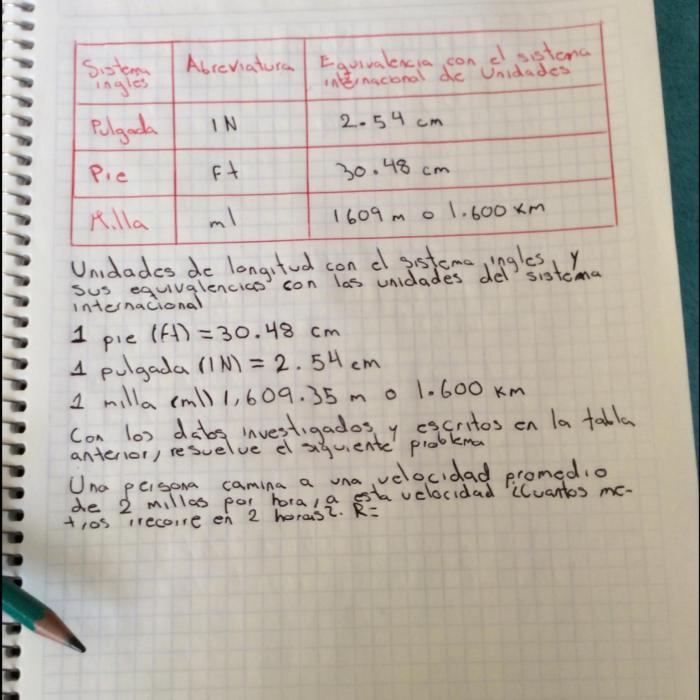 Sistema ingles | Abreviatura | Equivalencia con el sistema internacional de Unidades
Pulgada | IN | 2.54 cm
Pie | Ft | 30.48 cm
Milla | ml | 1609 m o 1.600 km
Unidades de longitud con el sistema ingles y
sus equivalencias con las unidades del sistema
internacional
1 pie (ft) = 30.48 cm
1 pulgada (IN) = 2.54 cm
1 milla (ml) 1,609.35 m o 1.600 km
Con los datos investigados y escritos en la tabla
anterior, resuelve el siguiente problema
Una persona camina a una velocidad promedio
de 2 millas por hora, a esta velocidad ¿Cuantos me-
tros rrecorre en 2 horas?. R=